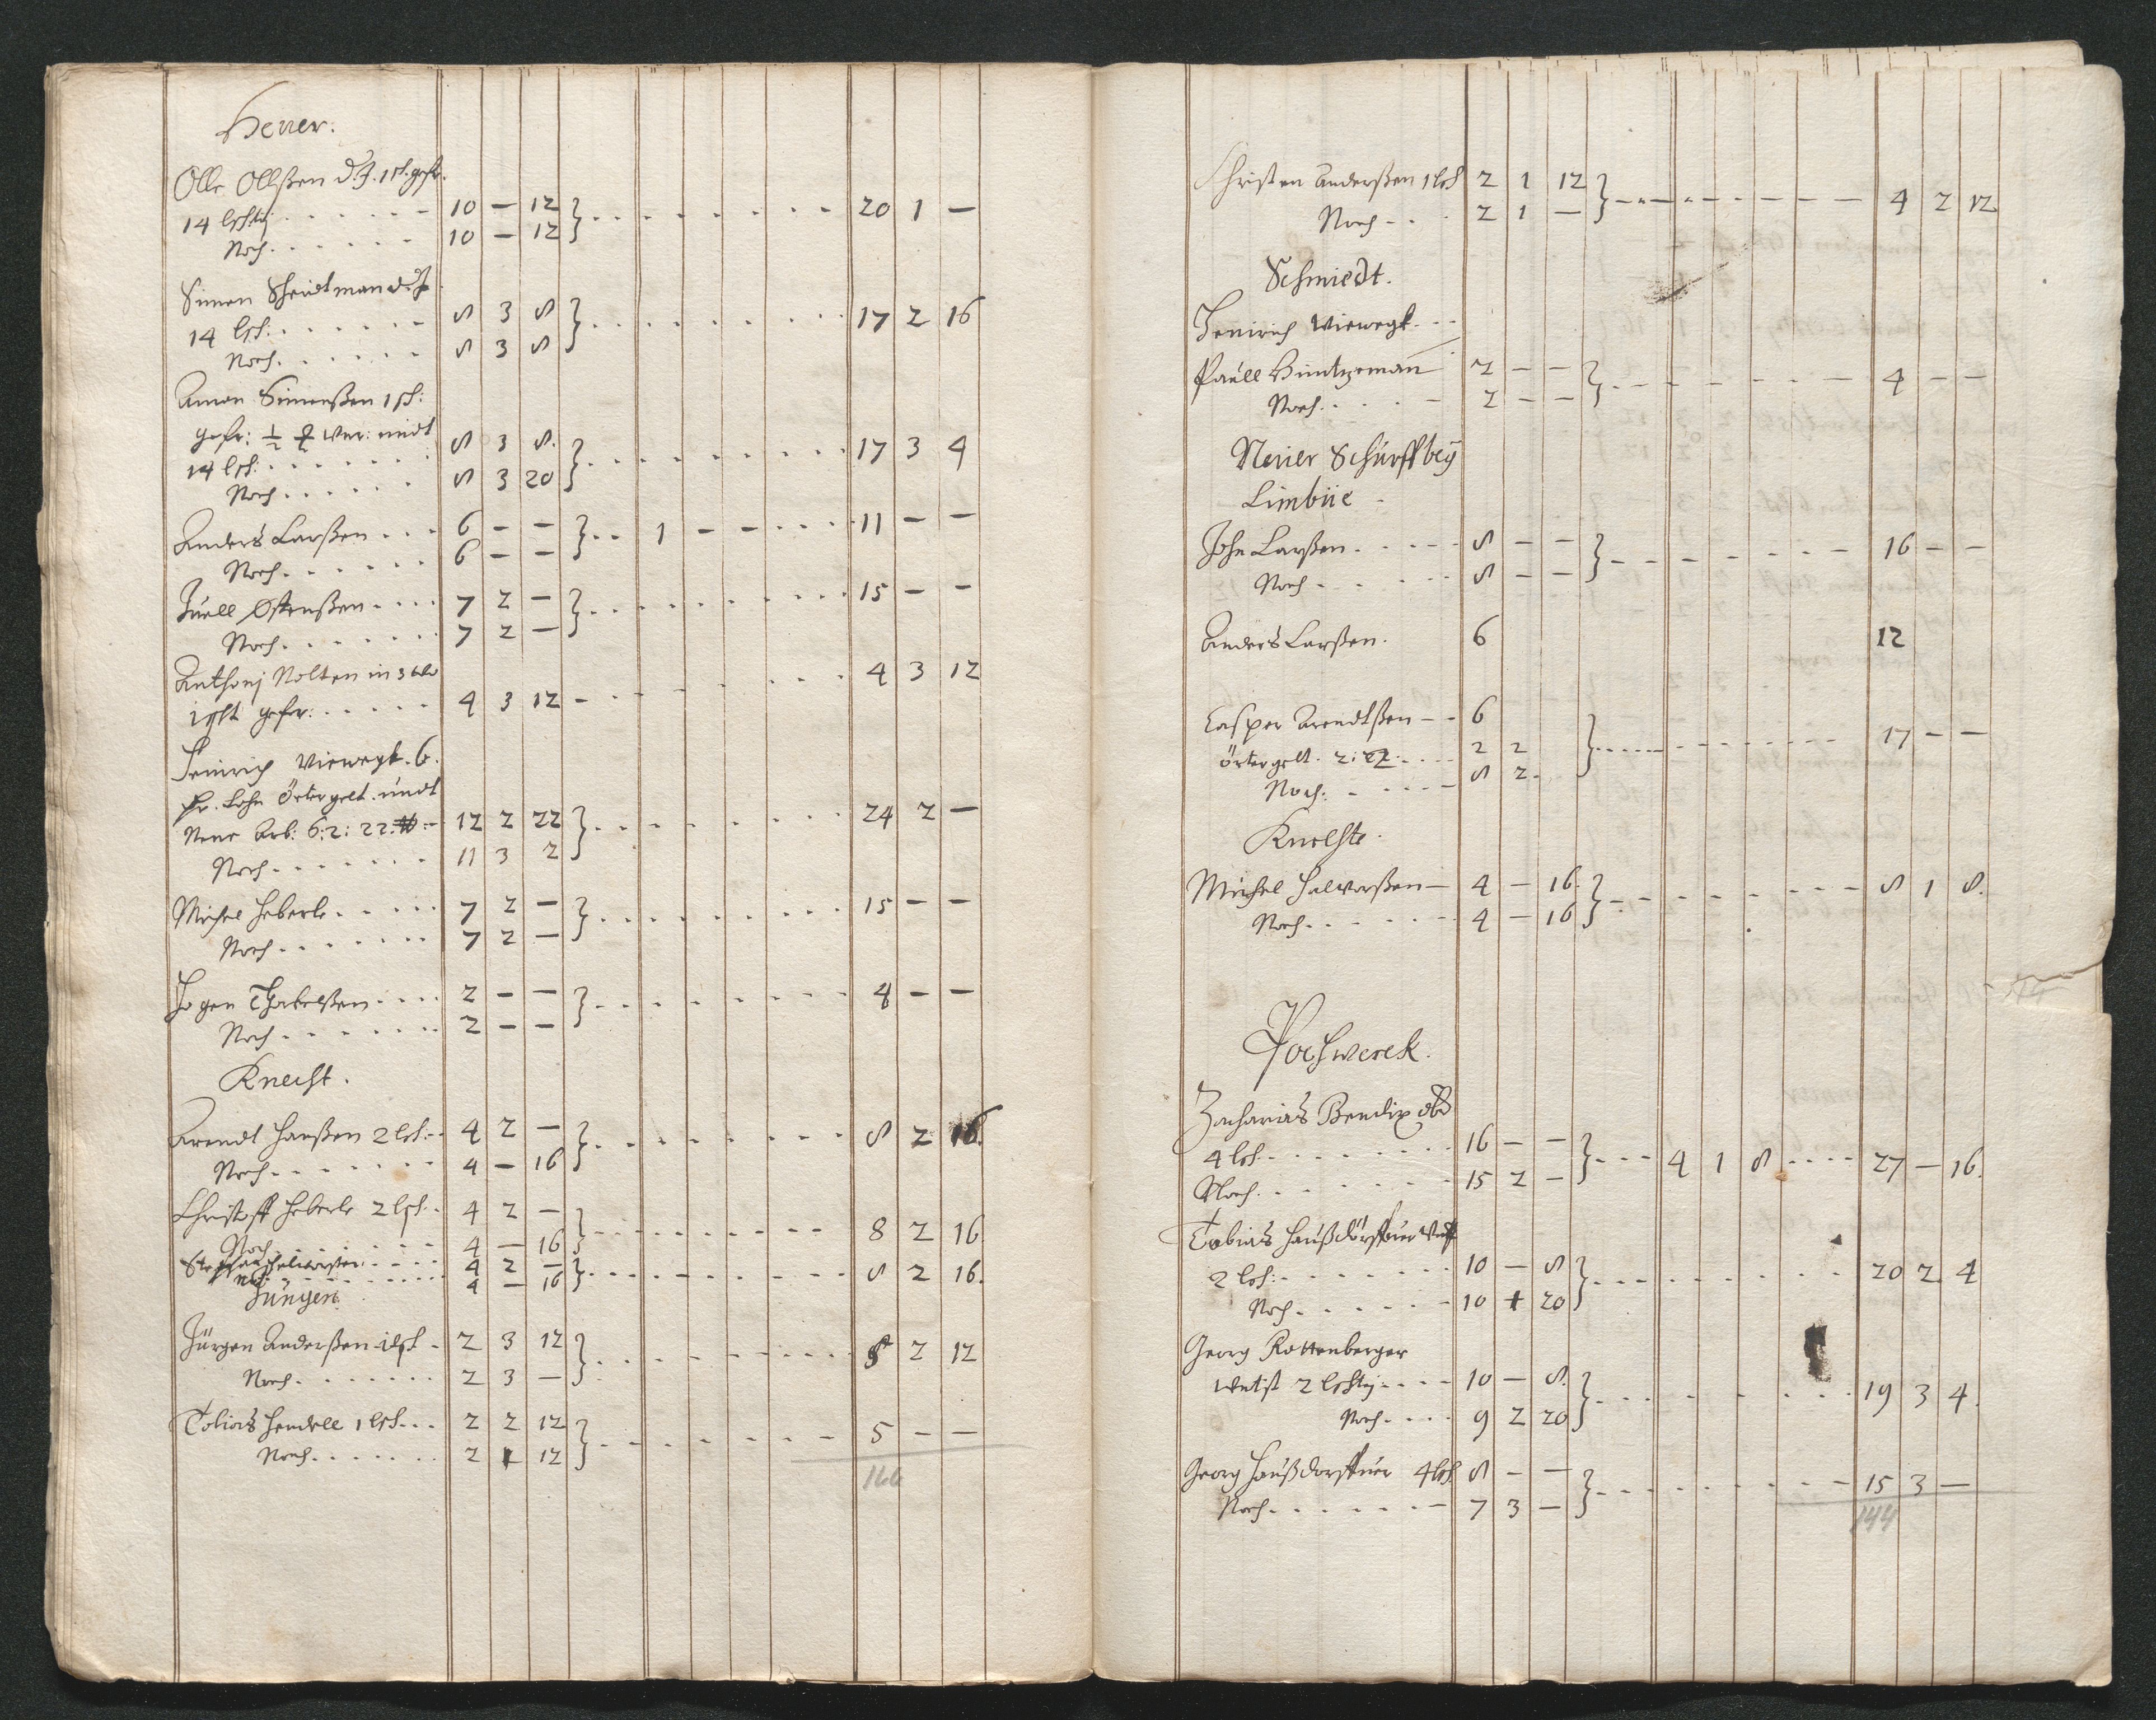 Heuer.
Olle Ollßen d. J. 1 sch. gefr.
14 lchtn . . . . . . 10 — 12 } . . . . . . . . 20 1 —
Noch . . . . . . 10 — 12
Simon Scheidtman d. J.
14 lch: . . . . . . 8 3 8 } . . . . . . . . 17 2 16
Noch . . . . . . 8 3 8
Amon Simonßen 1 sch:
gefr: ½ Ver: undt
14 lch: . . . . . . 8 3 8. } . . . . . . . . 17 3 4
Noch . . . . . . 8 3 20
Anders Larßen . . . 6 — — } . . 1 — — . . . . 11 — —
Noch . . . . . . 6 — —
Juell Ostenßen . . . . 7 2 — } . . . . . . . . 15 — —
Noch . . . . . . 7 2 —
Anthonj Nolten in 3
gefr: . . . . . 4 3 12 — . . . . . . 4 3 12
Heinrich Viewegk. 6.
sch. Lohn Örtergelt. undt
Neue Arb: 6: 2: 22: — 12 2 22 } . . . . . . . . 24 2 —
Noch . . . . . . 11 3 2
Michel Heberle . . . . . 7 2 — } . . . . . . . . 15 — —
Noch . . . . . . 7 2 —
Hogen Thorkelßen . . . . 2 — — } . . . . . . . . 4 — —
Noch . . . . . . 2 — —
Knecht.
Arendt Hanßen 2 lch: . . 4 2 — } . . . . . . . . 8 2 16.
Noch . . . . . . 4 — 16
Christoff Heberle 2 lch: . 4 2 — } . . . . . . . . 8 2 16
Noch . . . . . . 4 — 16
Steffan Halworßen . . . . 4 2 — } . . . . . . . . 8 2 16.
Noch . . . . . . 4 — 16
Jungen
Jürgen Anderßen 1 lch . 2 3 12 } . . . . . . . . 5 2 12
Noch . . . . . . 2 3 —
Tobias Hendell 1 lch . . . 2 2 12 } . . . . . . . . 5 — —
Noch . . . . . . 2 1 12
166
Christen Anderßen 1 lch 2 1 12 } . . . . . . . . 4 2 12
Noch . . . 2 1 —
Schmiedt.
Heinrich Viewegk . . .
Paull Huntzeman 2 — — } . . . . . . . . 4 — —
Noch . . . . 2 — —
Neuer Schurff beÿ
Limbüe
John Larßen . . . . . 8 — — } . . . . . . . . 16 — —
Noch . . . . . 8 — —
Anders Larßen . 6 12
Casper Arendtßen — . 6
örtergelt. 2: 2 . . . . 2 2 } . . . . . . . . 17 — —
Noch: . . . . 8 2.
Knechte.
Michel Halvorßen — 4 — 16. } . . . . . . . . 8 1 8.
Noch . . . . . . 4 — 16
Pochwerck.
Zacharias Bendix
4 lch . . . . . . . 16 — — } . . . 4 1 8 . . . . 27 — 16.
Noch . . . . . . 15 2 —
Tobias Haußdörffer
2 lch: . . . . . . 10 — 8 } . . . . . . . . 20 2 4
Noch . . . . . . 10 1 20
Georg Rottenberger
2 lchtn . . . . 10 — 8. } . . . . . . . . 19 3 4.
Noch . . . . 9 2 20
Georg Haußdorffer 4 lch 8 — — } . . . . . . . . 15 3 —
Noch . . . . . . 7 3 —
144